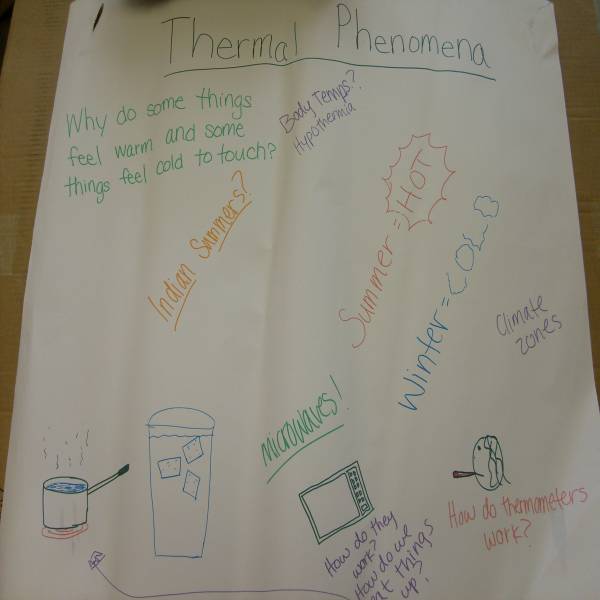 Thermal Phenomena
Why do some things
feel warm and some
things feel cold to touch?
Body Temps?
Hypothermia
Indian Summers?
Summer = HOT
Winter = COLD
Climate
zones
microwaves!
How do thermometers
work?
How do they
work?
How do we
things
up?